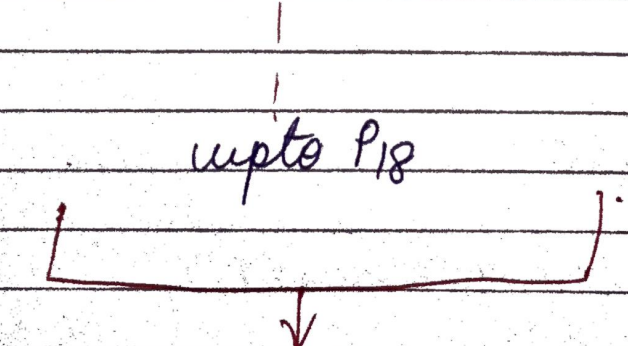 upto P18